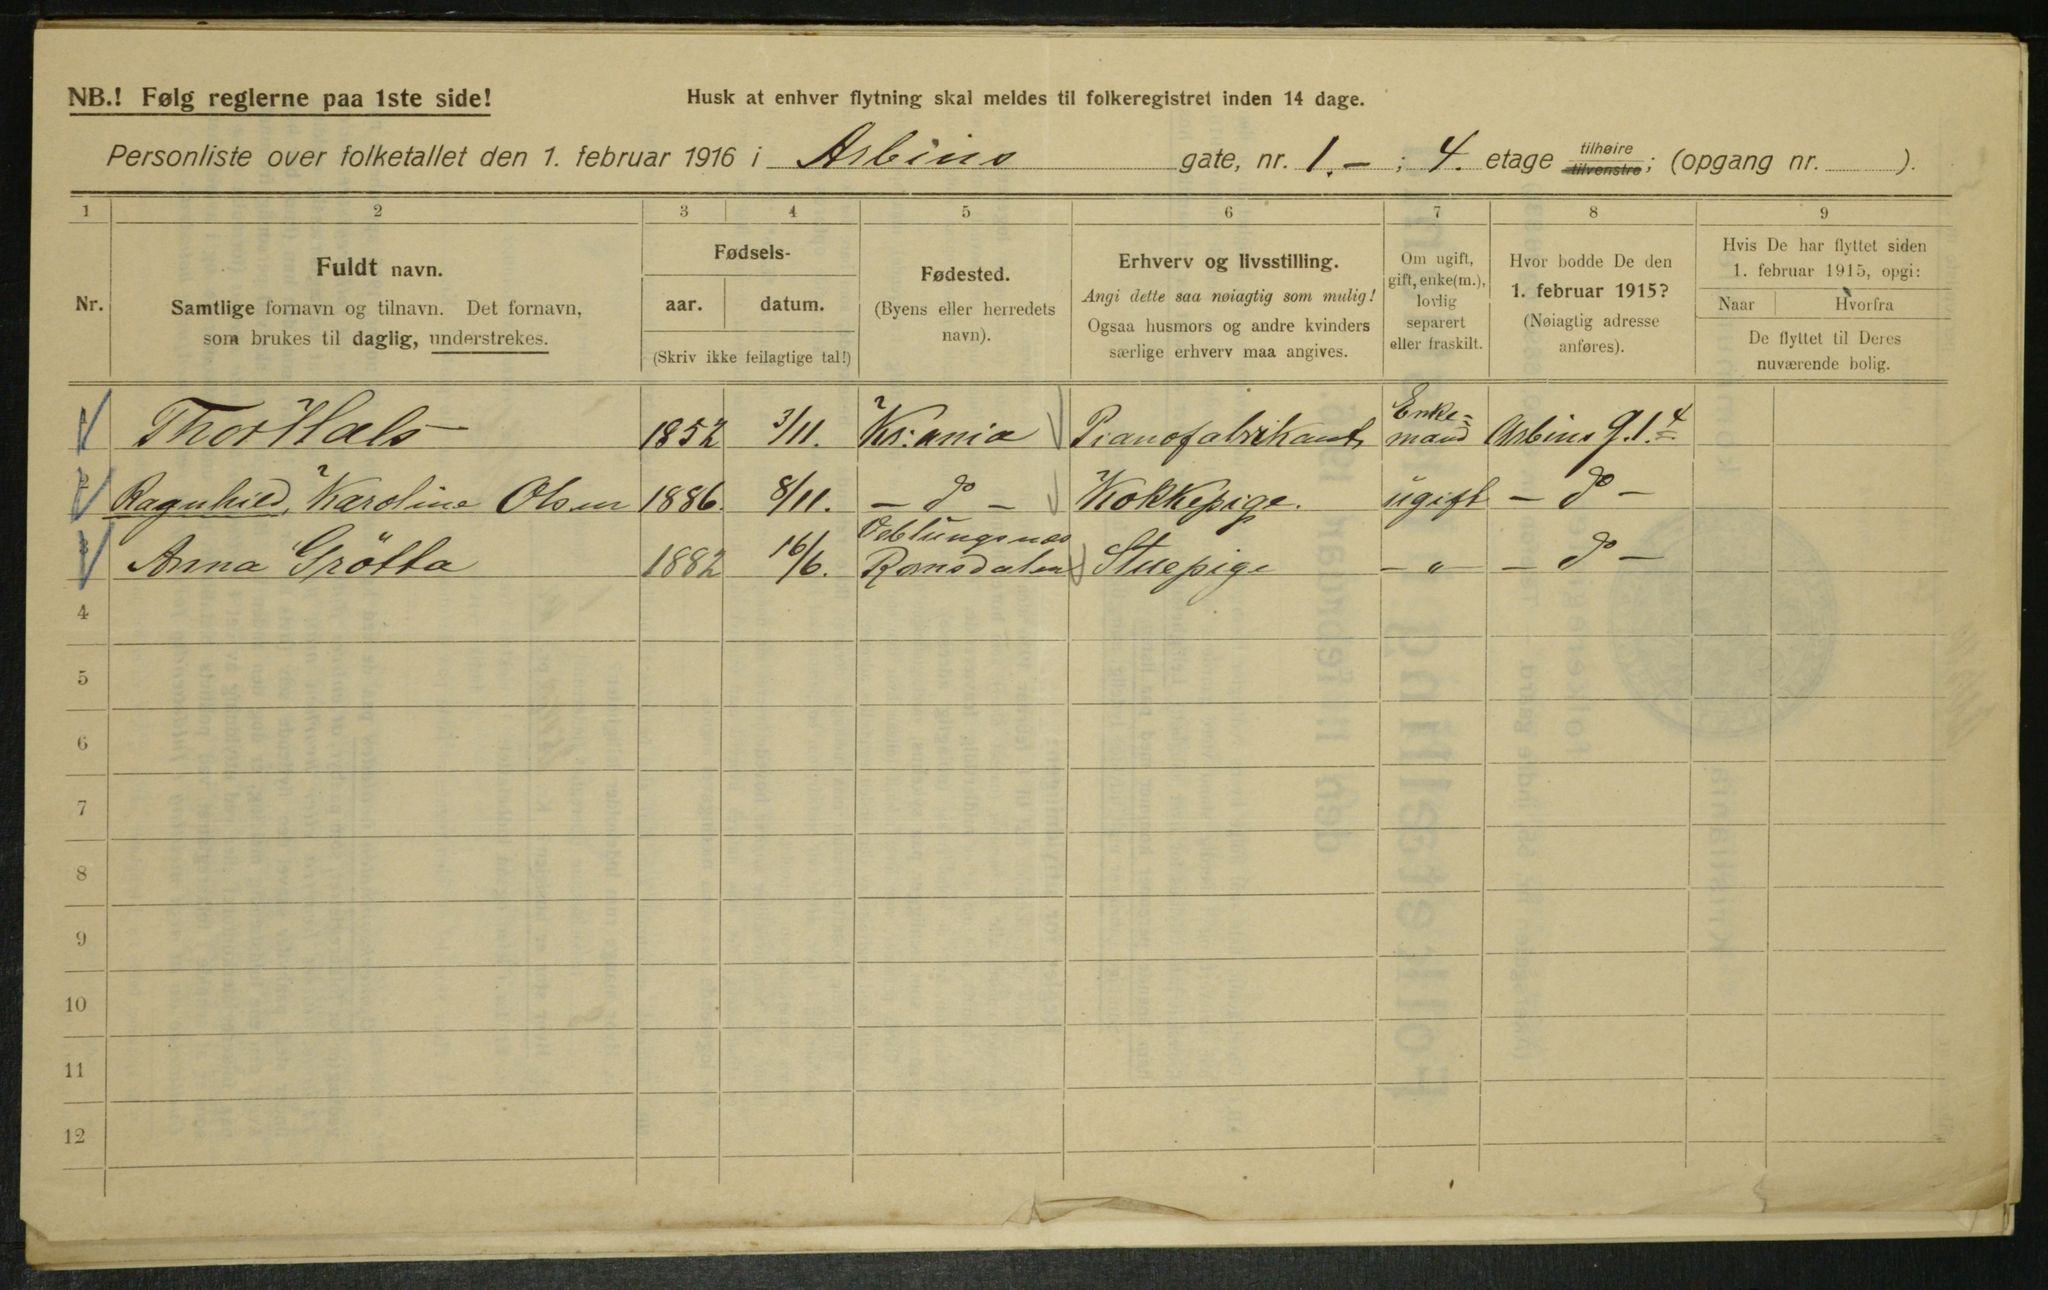 NB.! Følg reglerne paa 1ste side!
Husk at enhver flytning skal meldes til folkeregistret inden 14 dage.
Personliste over folketallet den 1. februar 1916 i Arbins gate, nr. 1.-; 4. etage tilhøire tilvenstre; (opgang nr. ).
1 2 3 4 5 6 7 8 9
Nr.
Fuldt navn.
Samtlige fornavn og tilnavn. Det fornavn,
som brukes til daglig, understrekes.
Fødsels-
aar. datum.
(Skriv ikke feilagtige tal!)
Fødested.
(Byens eller herredets
navn).
Erhverv og livsstilling.
Angi dette saa nøiagtig som mulig!
Ogsaa husmors og andre kvinders
særlige erhverv maa angives.
Om ugift,
gift, enke(m.),
lovlig
separert
eller fraskilt.
Hvor bodde De den
1. februar 1915?
(Nøiagtig adresse
anføres).
Hvis De har flyttet siden
1. februar 1915, opgi:
Naar Hvorfra
De flyttet til Deres
nuværende bolig.
1 Thor Hals 1852 3/11. Kr.ania Pianofabrikant Enke=mand Arbins g. 1. 4
2 Ragnhild, Karoline Olsen 1886. 8/11. - do - Kokkepige. ugift - do -
3 Anna Grötta 1882 16/6. Veblungsnæs Romsdalen Stuepige - " - - do -
4
5
6
7
8
9
10
11
12